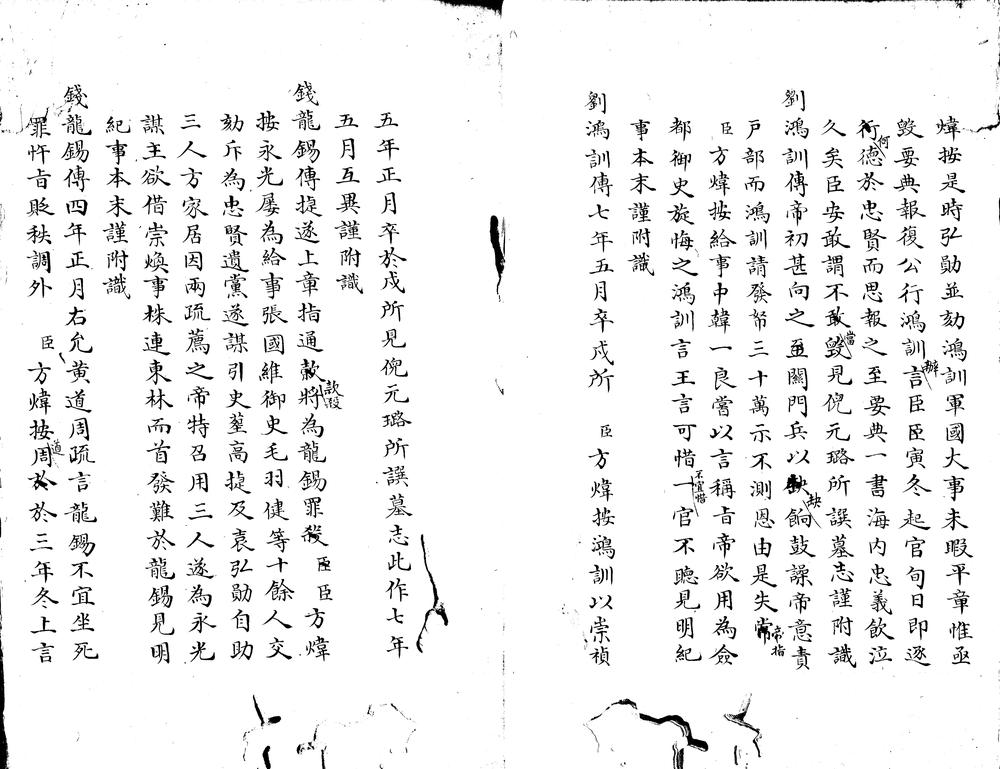 煒按是時弘勛並劾鴻訓軍國大事未暇平章惟亟
毀要典報復公行鴻訓言臣臣寅冬起官旬日即逐
辦
行德於忠賢而思報之至要典一書海內忠義飲泣
何
久矣臣安敢謂不敢毀見倪元璐所譔墓志謹附識
當
劉鴻訓傳帝初甚向之至關門兵以缺餉鼓譟帝意責
缺
戶部而鴻訓請發帑三十萬示不測恩由是失常
帝指
臣方煒按給事中韓一良嘗以言稱旨帝欲用為僉
都御史旋悔之鴻訓言王言可惜一官不聽見明紀
不宜惜
事本末謹附識
劉鴻訓傳七年五月卒戍所 臣方煒按鴻訓以崇禎
五年正月卒於戍所見倪元璐所譔墓志此作七年
五月互異謹附識
錢龍錫傳捷遂上章指通款將為龍錫罪 臣臣方煒
款殺
按永光屢為給事張國維御史毛羽健等十餘人交
劾斥為忠賢遺黨遂謀引史𡎺高捷及袁弘勛自助
三人方家居因兩疏薦之帝特召用三人遂為永光
謀主欲借崇煥事株連東林而首發難於龍錫見明
紀事本末謹附識
錢龍錫傳四年正月右允黃道周疏言龍錫不宜坐死
罪忤旨貶秩調外 臣方煒按周於於三年冬上言
道